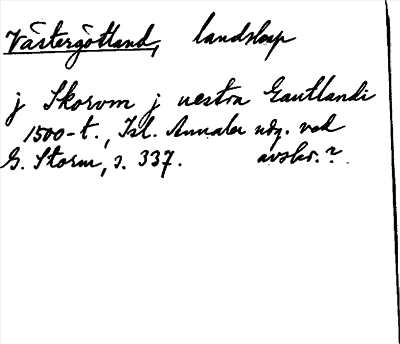 Västergötland, landskap
j Skorom j uestra Gautlandi
1500-t., Isl. Annaler udg. ved
G. Storm, s. 337. avskr.?